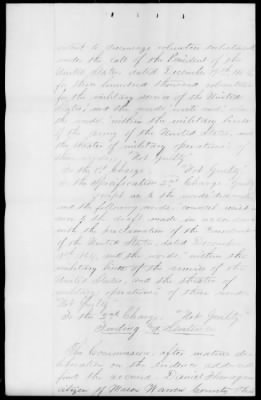 intent to discourage volunteer enlistments
under the call of the President of the
United States, dated December 19th 1864
for three hundred thousand volunteers
for the military service of the United
States, and the words
the words "within the military lines
of the army of the United States, and
the theater of military operations" of
"Not Guilty"
To the 1st Charge, "Not Guilty"
To the Specification 2nd Charge, "Guilty"
except as to the words
and the following
of the draft made in accordance
with the proclamation of the President
of the United States, dated December
19th 1864, and the words "within the
military lines of the armies of the
United States, and the theater of
military operations" of these words
"Not Guilty"
To the 2nd Charge, "Not Guilty"
Finding and Sentence
The Commission, after mature de-
liberation on the evidence adduced
find the accused, Daniel
citizen of Warren County